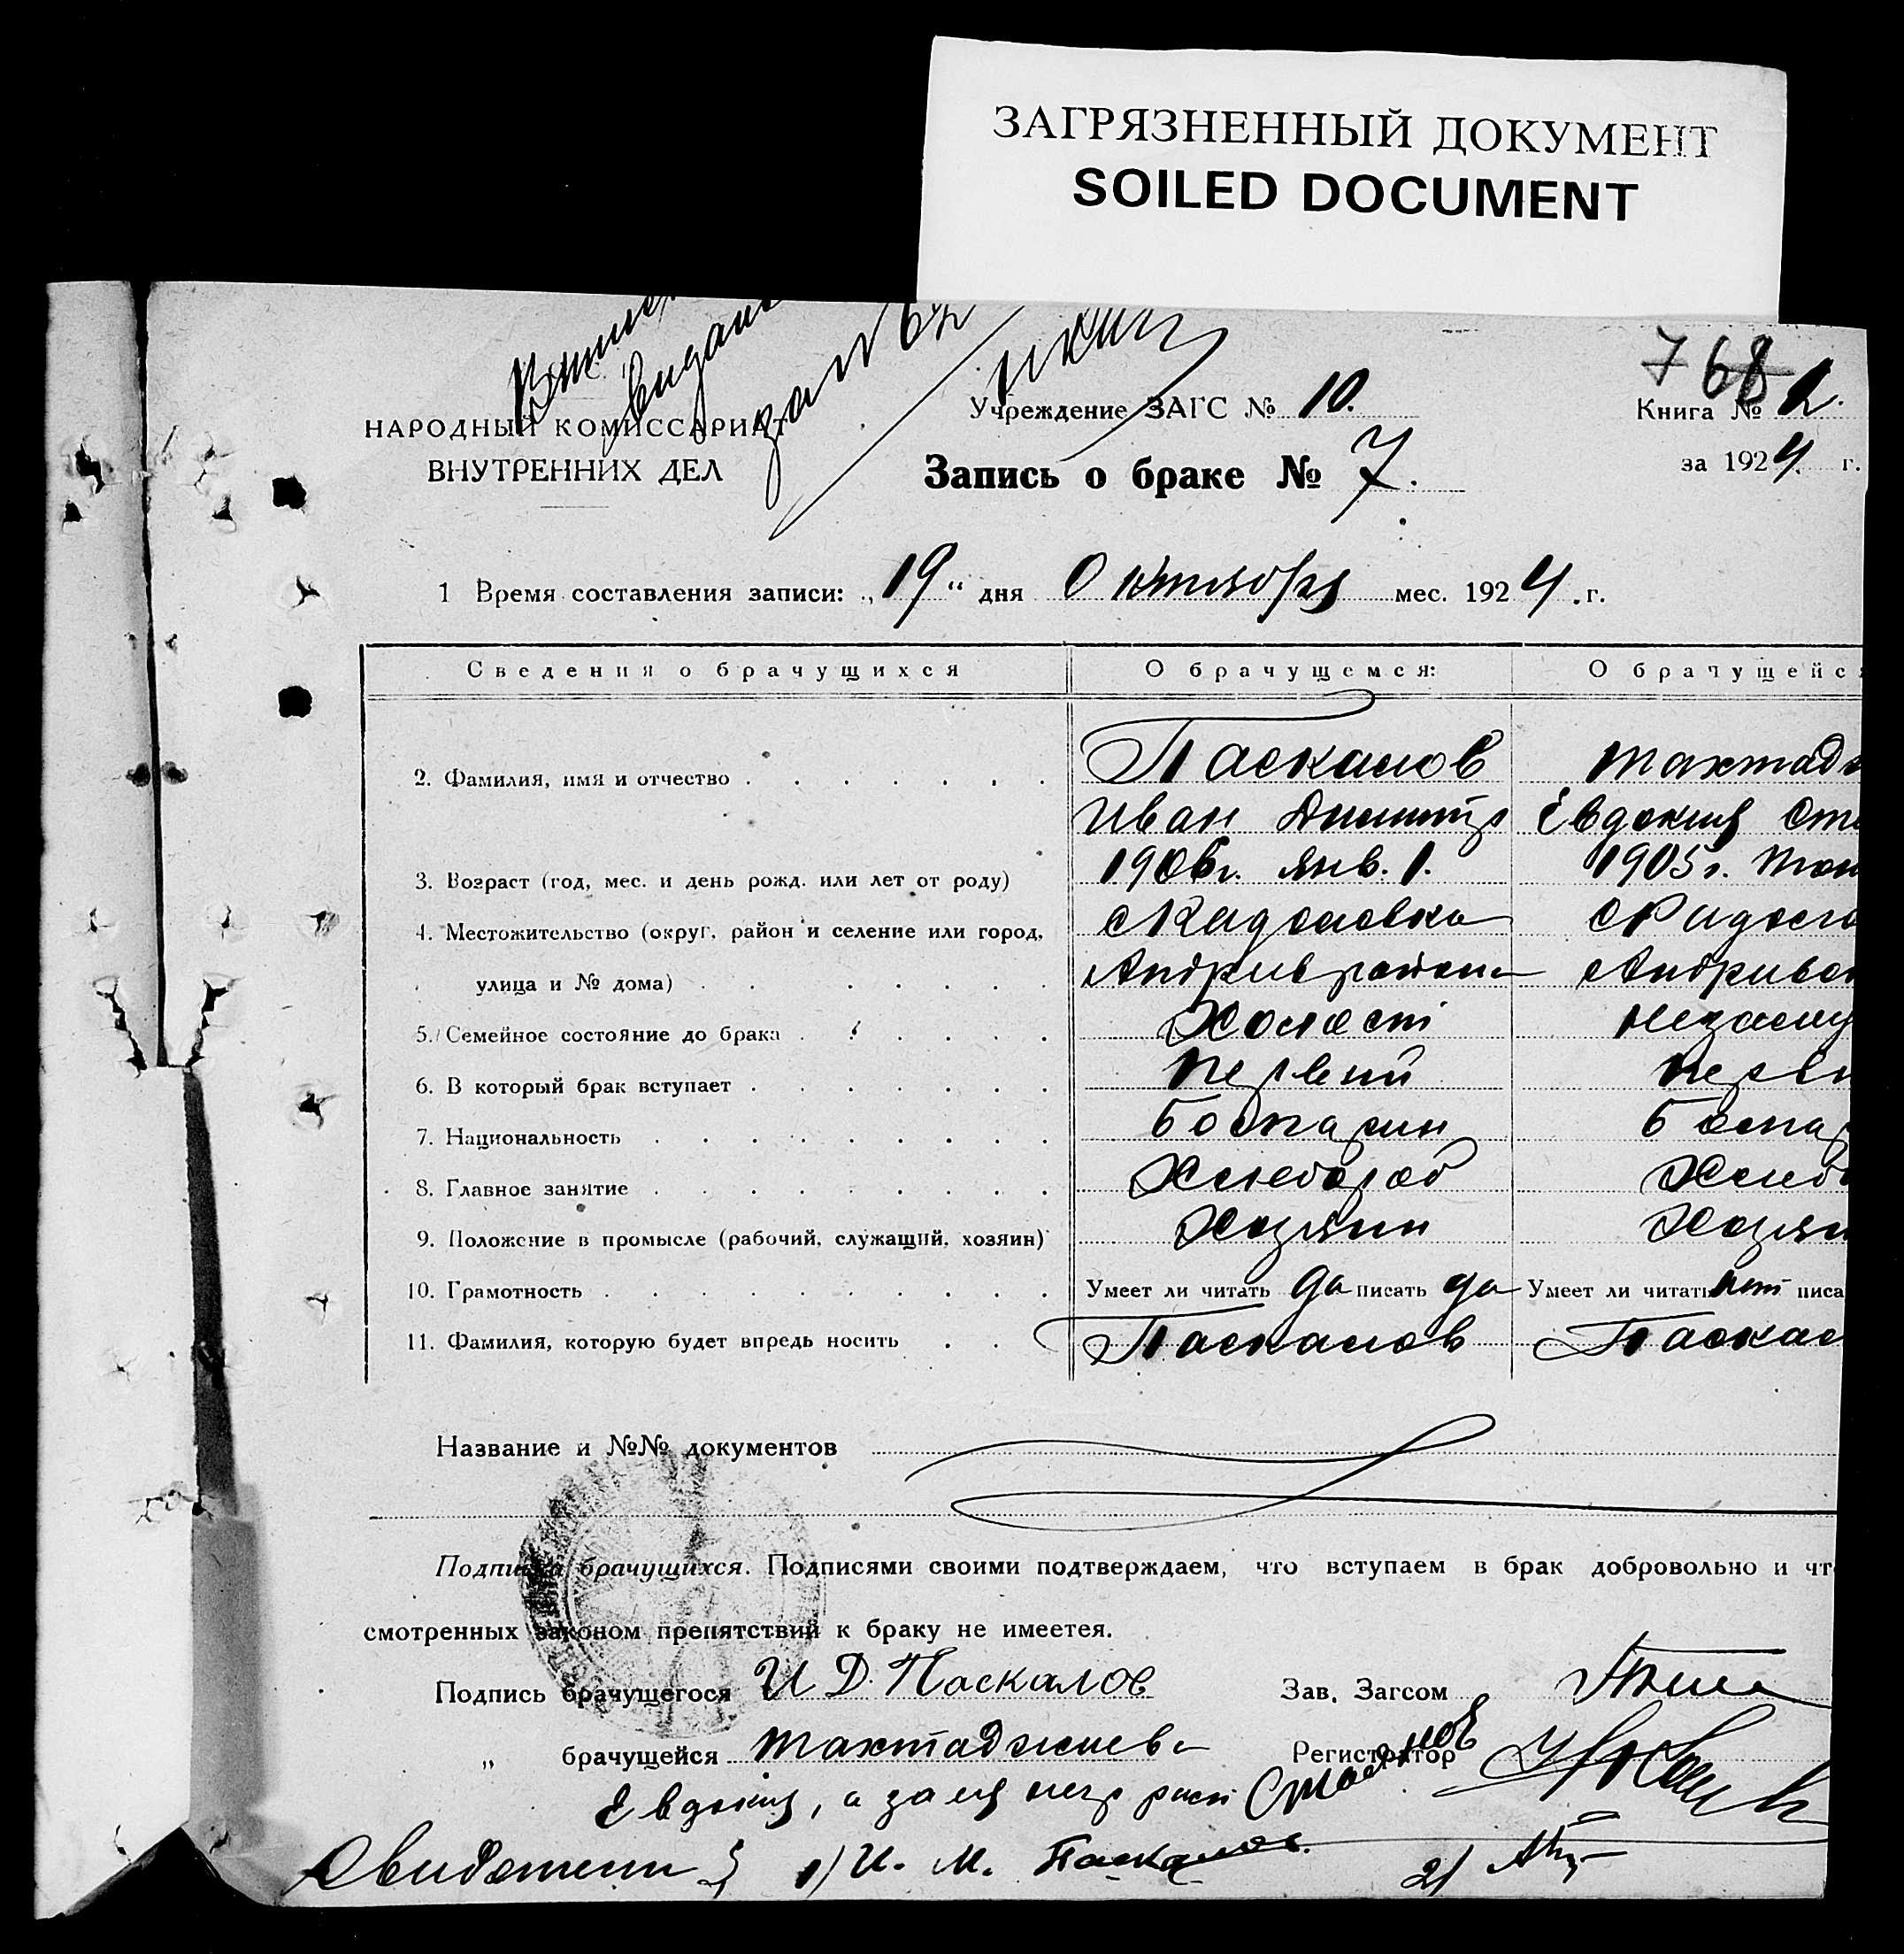 ЗАГРЯЗНЕННЫЙ ДОКУМЕНТ
SOILED DOCUMENT
НАРОДНЫЙ КОМИССАРИАТ
ВНУТРЕННИХ ДЕЛ
Учреждение ЗАГС № 10.
768
Книга № 2.
за 1924 г.
Запись о браке № 7.
1 Время составления записи: „19“ дня Октября мес. 1924.г.
Сведения о брачущихся О брачущемся: О брачущейся
2. Фамилия, имя и отчество Паскалов Тахтадж
Иван Димитр Евдокия Сте
3. Возраст (год, мес. и день рожд. или лет от роду) 1906г. янв. 1. 1905г.
4. Местожительство (округ, район и селение или город,
улица и № дома) Андрив района Андривск
5. Семейное состояние до брака Холост незаму
6. В который брак вступает первый первы
7. Национальность Болгарин Болгар
8. Главное занятие Хлебороб Хлебо
9. Положение в промысле (рабочий, служащий, хозяин) Хозяин Хозяи
10. Грамотность Умеет ли читать да писать да Умеет ли читать нет писа
11. Фамилия, которую будет впредь носить Паскалов Паскал
Название и №№ документов
Подписка брачущихся. Подписями своими подтверждаем, что вступаем в брак добровольно и что
смотренных законом препятствий к браку не имеетея.
Подпись брачущегося И Д. Паскалов Зав. Загсом
„ брачущейся Тахтаджиева Регистратор
Евдокия, а за ея негр расп
Свидетели 1) И. М. Паскалов. 2)